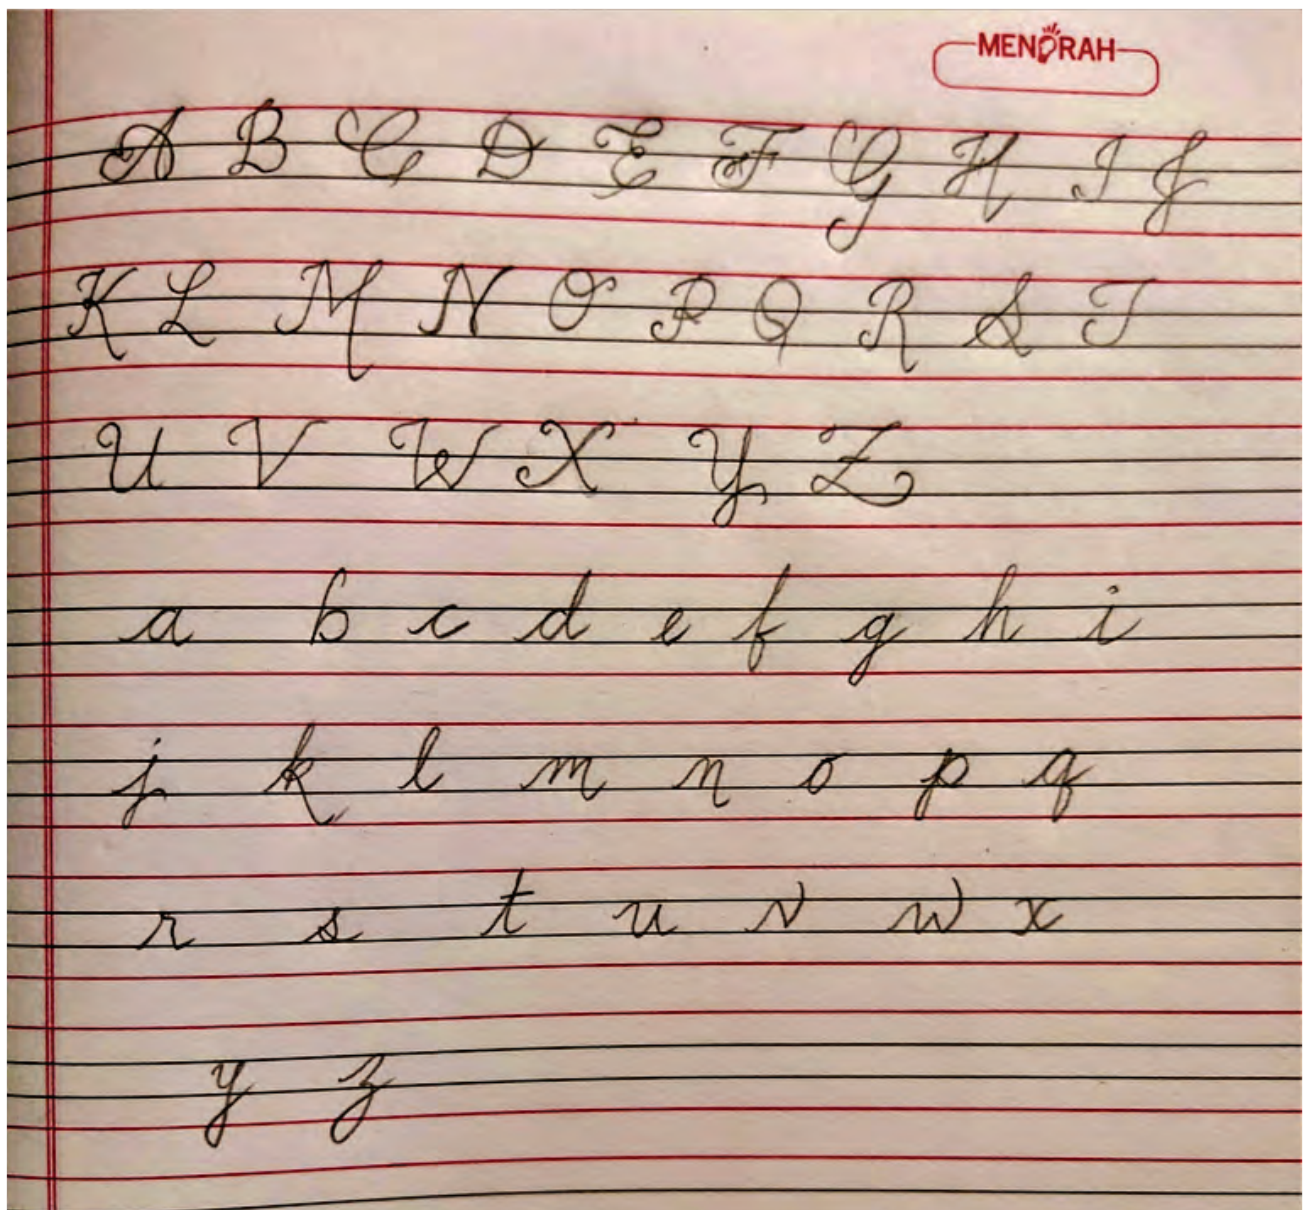 MENORAH
A B C D E F G H I J
K L M N O P Q R S T
U V W X Y Z
a b c d e f g h i
j k l m n o p q
r s t u v w x
y z